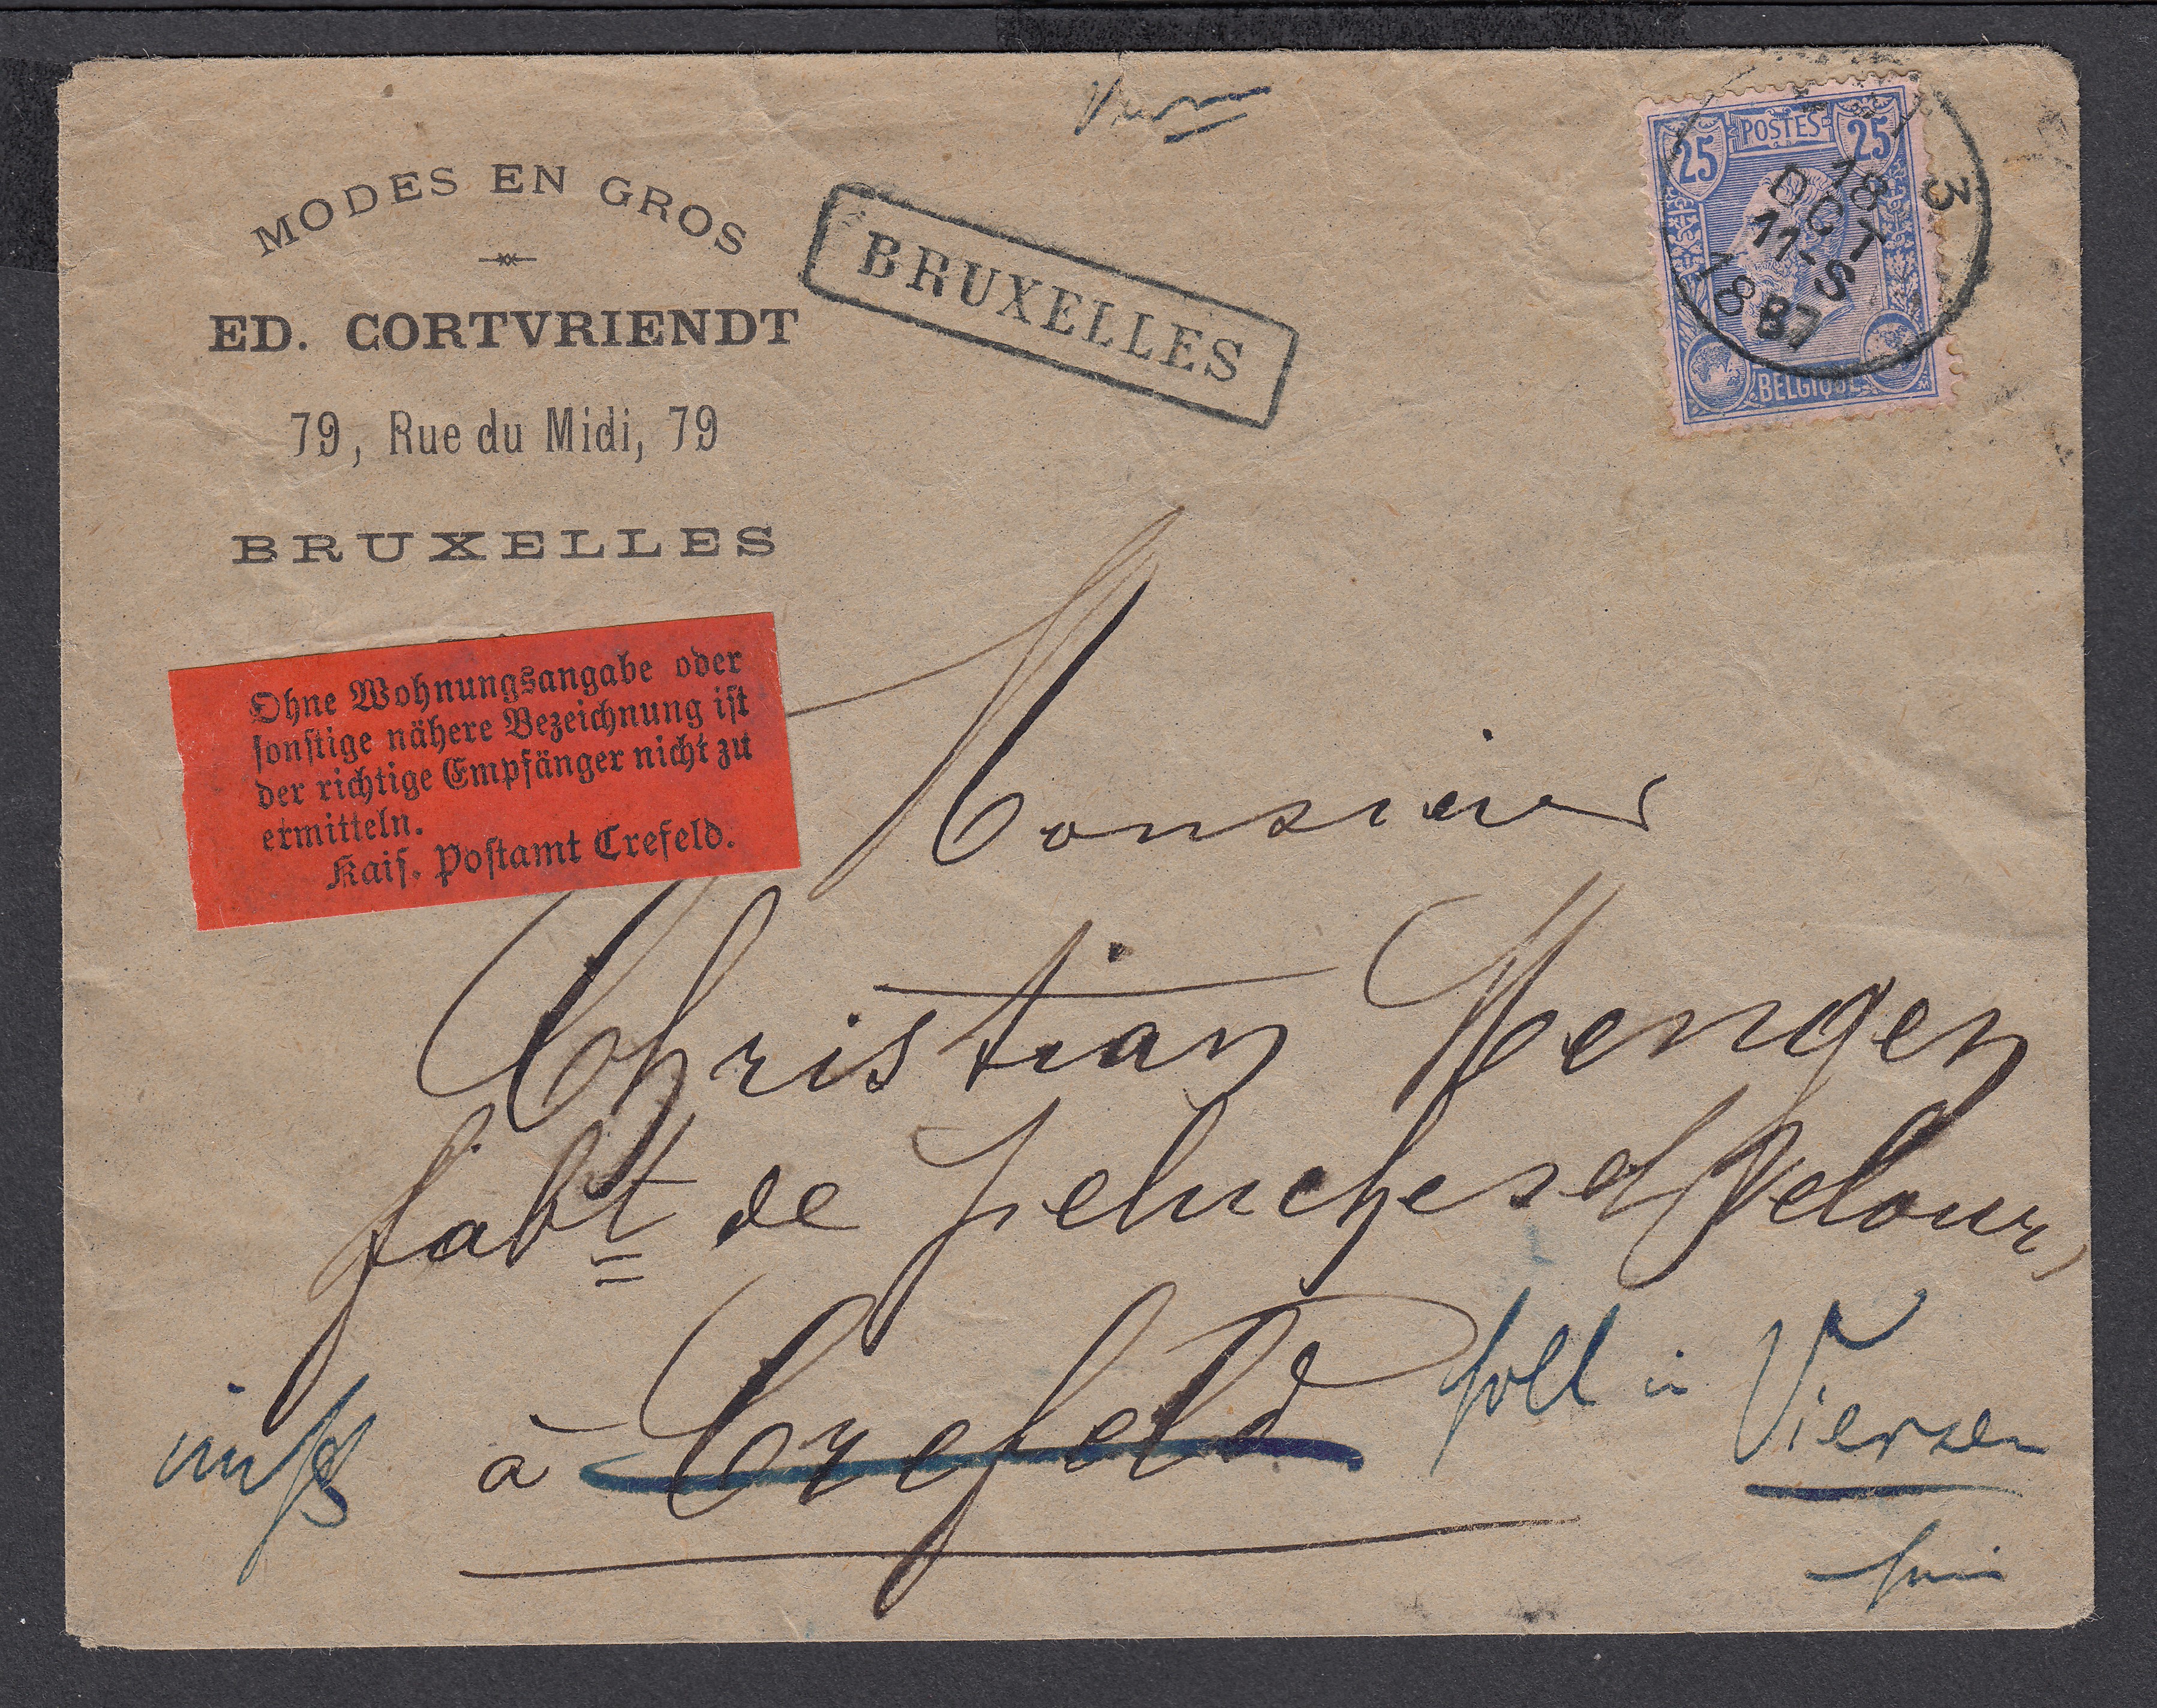 MODES EN GROS
ED. CORTVRIENDT
79, Rue du Midi, 79
BRUXELLES
BRUXELLES
25 POSTES 25
BELGIQUE
3
18
OCT
11-S
1887
Ohne Wohnungsangabe oder
sonstige nähere Bezeichnung ist
der richtige Empfänger nicht zu
ermitteln.
Kais. Postamt Crefeld.
Monsieur
Christian Mengen
fabt de peluches et Velours
à Crefeld
soll in Viersen
sein